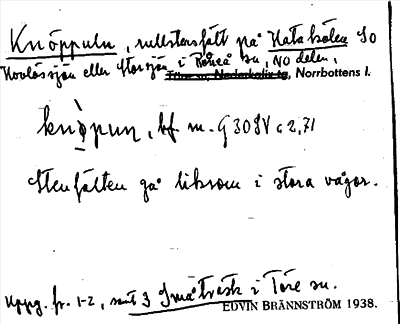 Knöppuln, rullstensfält på Hatakölen SO
Hovlössjön eller Storsjön i Råneå sn, NO delen,
Töre sn, Nederkalix tg, Norrbottens l.
knöpun, bf m. G 30 8V c 2,71
Stenfälten gå liksom i stora vågor.
Uppg. fr. 1-2, samt 3 Småträsk i Töre sn.
EDVIN BRÄNNSTRÖM 1938.